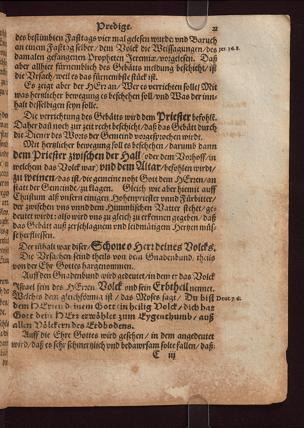 Predige.
des bestimbten Fasttags vier mal gelesen wurde vnd Baruch
an einem Fasttag selber / dem Volck die Weissagungen / des Jer. 36. 8.
damalen gefangenen Propheten Jeremiæ / vorgelesen. Daß
aber allhier fürnemblich des Gebätts meldung beschicht / ist
die Vrsach / weil es das fürnembste stück ist.
Es zeigt aber der HErr an / Wer es verrichten solle? Mit
was hertzlicher bewegung es beschehen soll / vnd Was der inn-
halt desselbigen seyn solle.
Die verrichtung des Gebätts wird dem Priester befohlē.
Daher dañ noch zur zeit recht beschicht / daß das Gebätt durch
die Diener des Worts der Gemeind vorgesprochen wirdt.
Mit hertzlicher bewegung soll es beschehen / darumb dann
dem Priester zwischen der Hall / oder dem Vorhoff / in
welchem das Volck war / vnd dem Altar / befohlen wirdt /
das ist / die gemeine noht Gott dem HErren / an
statt der Gemeind / zu klagen. Gleich wie aber hiemit auff
Christum als vnsern einigen Hohenpriester vnnd Fürbitter /
der zwischen vns vnnd dem Himmlischen Vatter stehet / ge-
deutet wirdt: also wird vns zu gleich zu erkennen gegeben / daß
das Gebätt auß zerschlagnem vnd leidmütigem Hertzen müs-
se herfliessen.
Der inhalt war diser / Schone o Herr deines Volcks,
Die Vrsachen seind theils von dem Gnadenbund, theils
von der Ehr Gottes hargenommen.
Auff den Gnadenbund wird gedeutet / in dem er das Volck
Israel sein des HErren Volck vnd sein Erbtheil nennet.
Welches dem gleichförmig ist / das Moses sagt / Du bist Deut. 7. 6.
dem HErren deinem Gott ein heilig Volck / dich hat
Gott dein HErr erwöhlet zum Eygenthumb / auß
allen Völckern des Erdbodens.
Auff die Ehre Gottes wird gesehen / in dem angedeutet
wird / daß es sehr schmertzlich vnd bedawrsam solte fallen / daß:
C iij